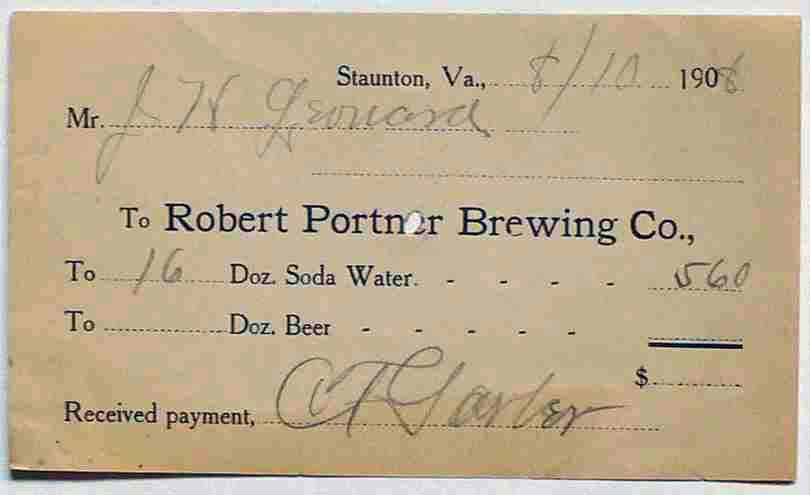 Staunton, Va., 8/10 1908
Mr. J H Grouard
To Robert Portner Brewing Co.,
To 16 Doz. Soda Water. - - - - 560
To Doz. Beer - - - - -
$
Received payment, CF Garber